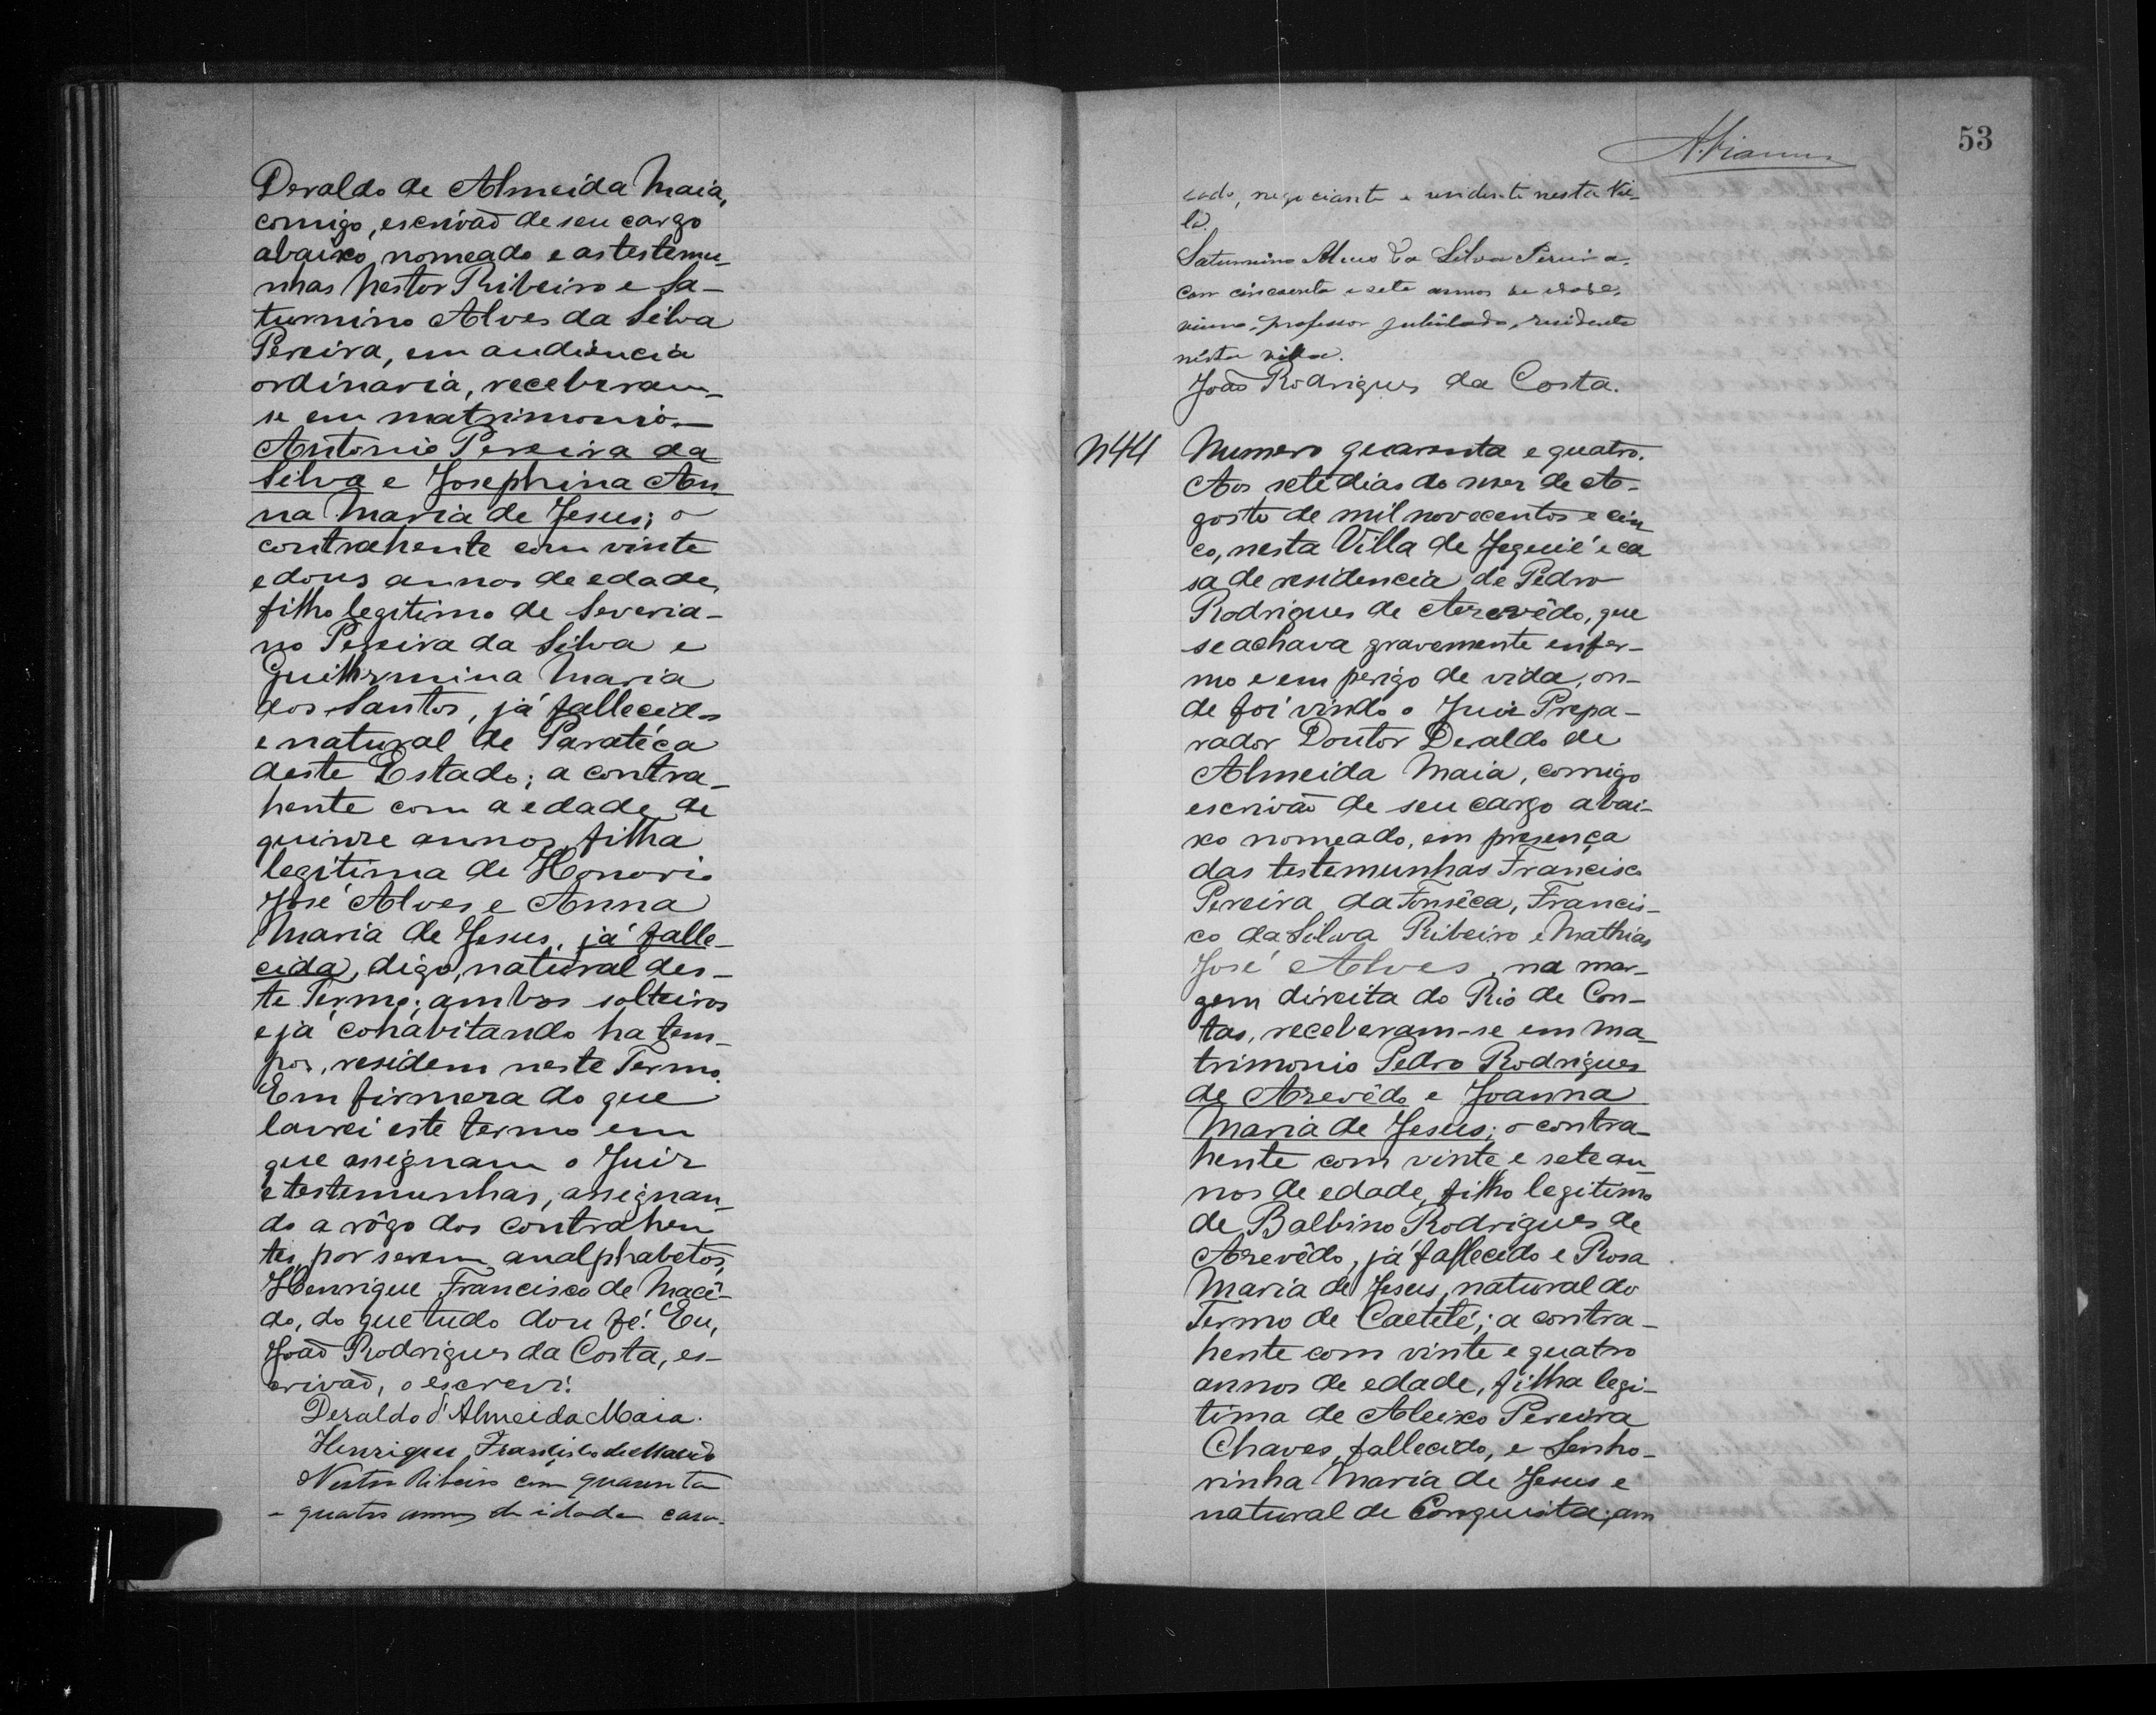 Deraldo de Almeida Maia,
comigo, escrivão de seu cargo
abaixo, nomeado e as testemu-
nhas Nestor Ribeiro e Sa-
turnino Alves da Silva
Pereira, em audiencia
ordinaria, receberam-
se em matrimonio—
Antonio Pereira da
Silva e Josephina An-
na Maria de Jesus; o
contrahente com vinte
e dous annos de edade,
filho legitimo de Severia-
no Pereira da Silva e
Guilhermina Maria
dos Santos, já fallecidos
e natural de Paratéca
deste Estado; a contra-
hente com a edade de
quinze annos, filha
legitima de Honorio
José Alves e Anna
Maria de Jesus, já falle-
cida, digo, natural des-
te Termo; ambos solteiros
e já cohabitando ha tem-
pos, residem neste Termo.
Em firmeza do que
lavrei este termo em
que assignam o Juiz
e testemunhas, assignan-
do a rôgo dos contrahen
tes, por serem analphabetos,
Henrique Francisco de Macê-
do, do que tudo dou fé. Eu,
João Rodrigues da Costa, es-
crivão, o escrevi.
Deraldo d'Almeida Maia.
Henrique Francisco de Macêdo
Nestor Ribeiro com quarenta
e quatro annos de idade casa-
53
sado, negociante e residente nesta Vil-
la.
Saturnino Alves da Silva Pereira,
com cincoenta e sete annos de edade,
viuvo, professor jubilado, residente
nesta villa.
João Rodrigues da Costa.
N44 Numero quarenta e quatro.
Aos sete dias do mez de A-
gosto de mil novecentos e cin
co, nesta Villa de Jequié e ca
sa de residencia de Pedro
Rodrigues de Azevêdo, que
se achava gravemente enfer-
mo e em perigo de vida, on-
de foi vindo o Juiz Prepa-
rador Doutor Deraldo de
Almeida Maia, comigo
escrivão de seu cargo abai-
xo nomeado, em presença
das testemunhas Francisco
Pereira da Fonsêca, Francis-
co da Silva Ribeiro e Mathias
José Alves, na mar-
gem direita do Rio de Con-
tas, receberam-se em ma-
trimonio Pedro Rodrigues
de Azevêdo e Joanna
Maria de Jesus; o contra-
hente com vinte e sete an-
nos de edade, filho legitimo
de Balbino Rodrigues de
Azevêdo, já fallecido e Rosa
Maria de Jesus, natural do
Termo de Caeteté; a contra-
hente com vinte e quatro
annos de edade, filha legi-
tima de Aleixo Pereira
Chaves, fallecido, e Senho-
rinha Maria de Jesus e
natural de Conquista; am